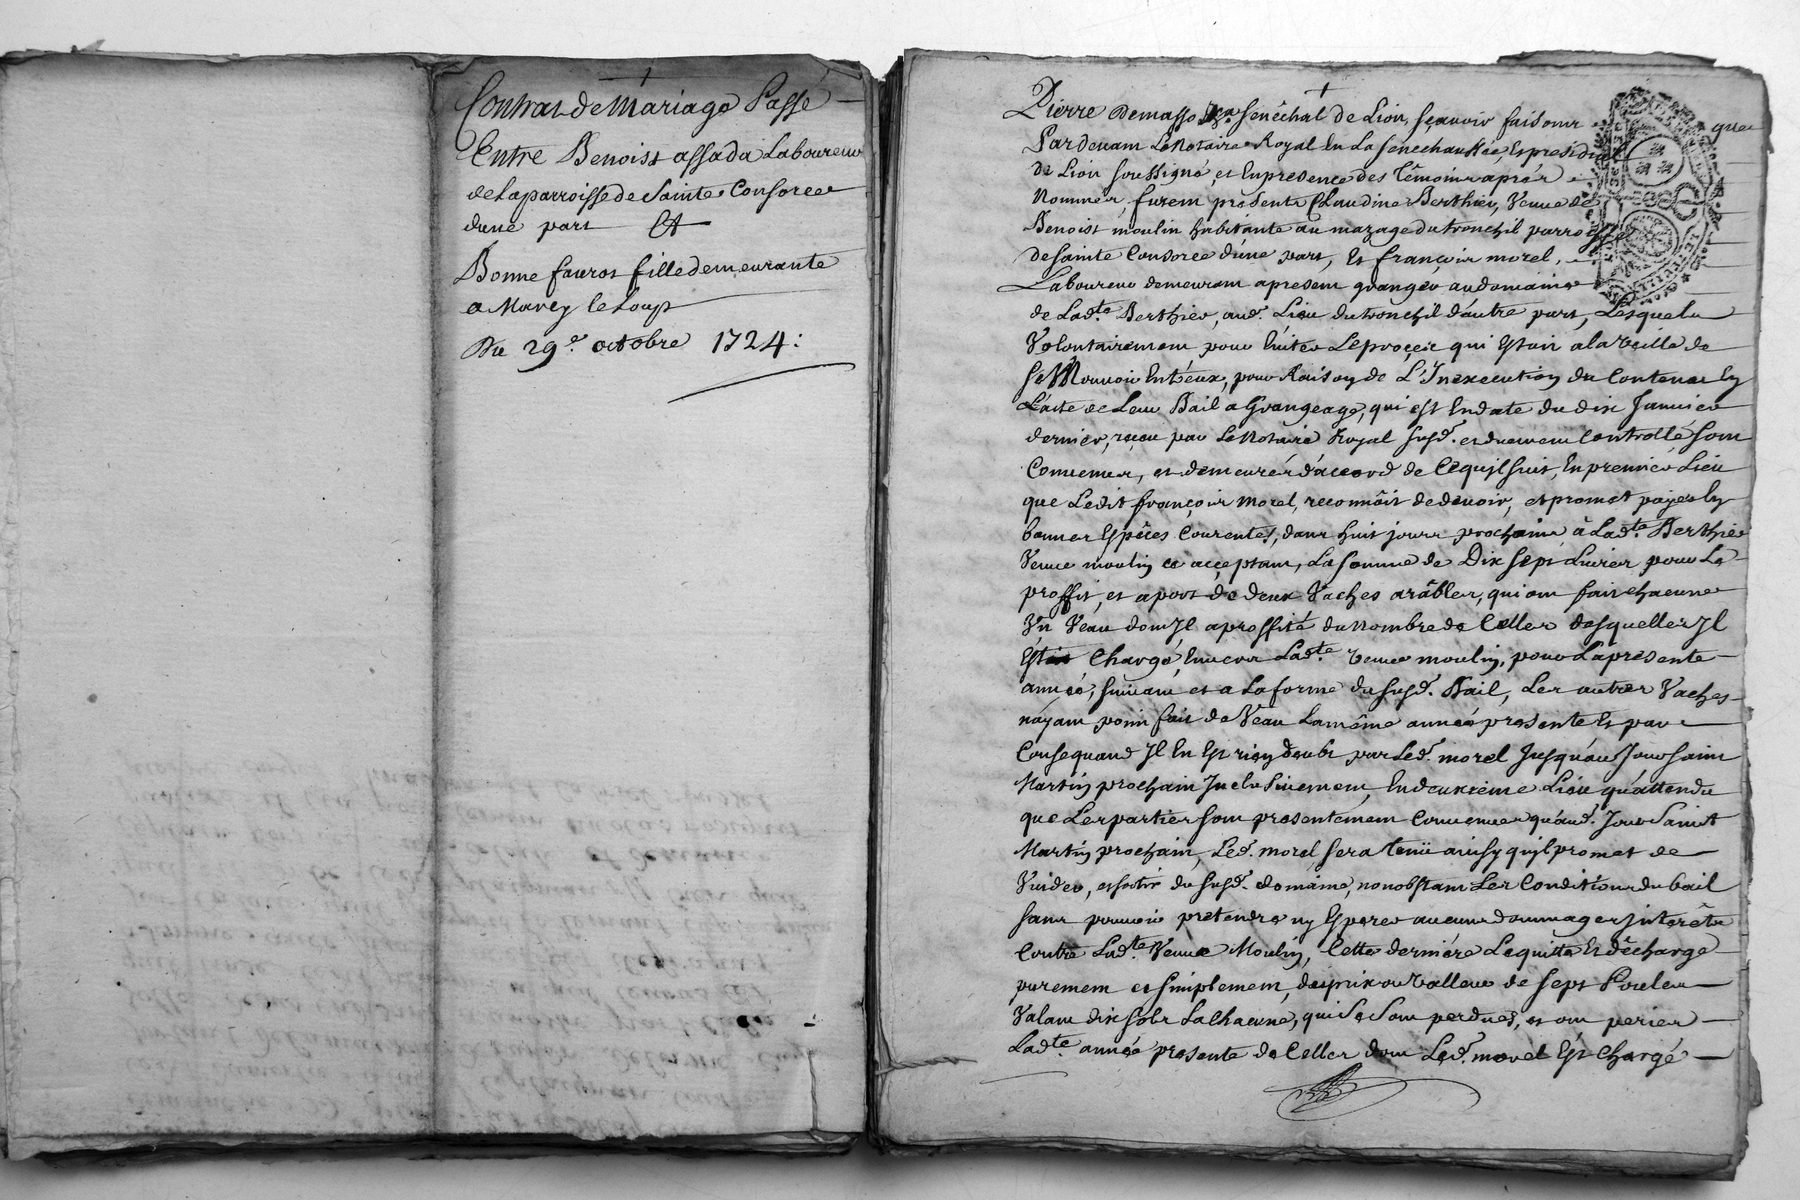 Contrat de Mariage Passé
Entre Benoist assada Laboureur
de la parroisse de Sainte Consorce
dune part Et
Bonne fauros fille demeurante
a Marcy le Loup
Du 29e. octobre 1724:
Pierre Demasso Sénéchal de Lion, sçavoir faisons que
Pardevant Le Notaire Royal En La Senechaussée, Et presidial
de Lion soussigné, et En presence des Témoins aprés
Nommés, furent présents Claudine Berthier, Veuve de
Benoist moulin habitante au mazage du tronchil parroisse
de Sainte Consorce d'une part, Et françois morel,
Laboureur demeurant apresent granger au domaine
de Ladte. Berthier, aud. Lieu du tronchil d'autre part, Lesquels
Volontairement pour Eviter Le procés qui Estoit a la veille de
se Mouvoir Entr'eux, pour Raison de L'Inexecution du Contenu En
L'acte de Leur Bail a Grangeage, qui est En date du dix Janvier
dernier, reçeu par Le Notaire Royal susd. et duement Controllé sont
Convenus, et demeurés d'accord de Ce quil suit, En premier Lieu
que Ledit françois morel, reconnoît de devoir, et promet payer En
bonnes Espéces Courentes, dans huit jours prochains à Ladte. Berthier
Veuve moulin ce acceptant, La somme de Dix sept Livres pour Le
proffit, et aport de deux Vaches arâbles, qui ont fait chacune
Un Veau dont Il a proffité du Nombre de Celles desquelles Il
Estoit Chargé, Envers Ladte. veuve moulin, pour La présente
année, suivant et a La forme du susd. Bail, Les autres Vaches
n'ayant point fait de Veau La même année présente Et par
Consequand Il En Est rien deubt par Led. morel Jusqu'au Jour saint
Martin prochain Inclusivement, En deuxieme Lieu qu'attendu
que Les parties sont presentement Convenues qu'aud. Jour Saint
Martin prochain, Led. morel sera tenü ainsy quil promet de
Vuider, et sortir du susd. domaine, nonobstant Les Conditions du bail
sans pouvoir prétendre ny Esperer aucuns dommages Interêts
Contre Ladte. Veuve Moulin, Cette derniére Le quitte Et décharge
purement et simplement, du prix ou valleur de sept Poules
Valant dix sols La Chacune, qui se sont perdues, et ont peries
Ladte. année présente de Celles dont Led. morel Est Chargé